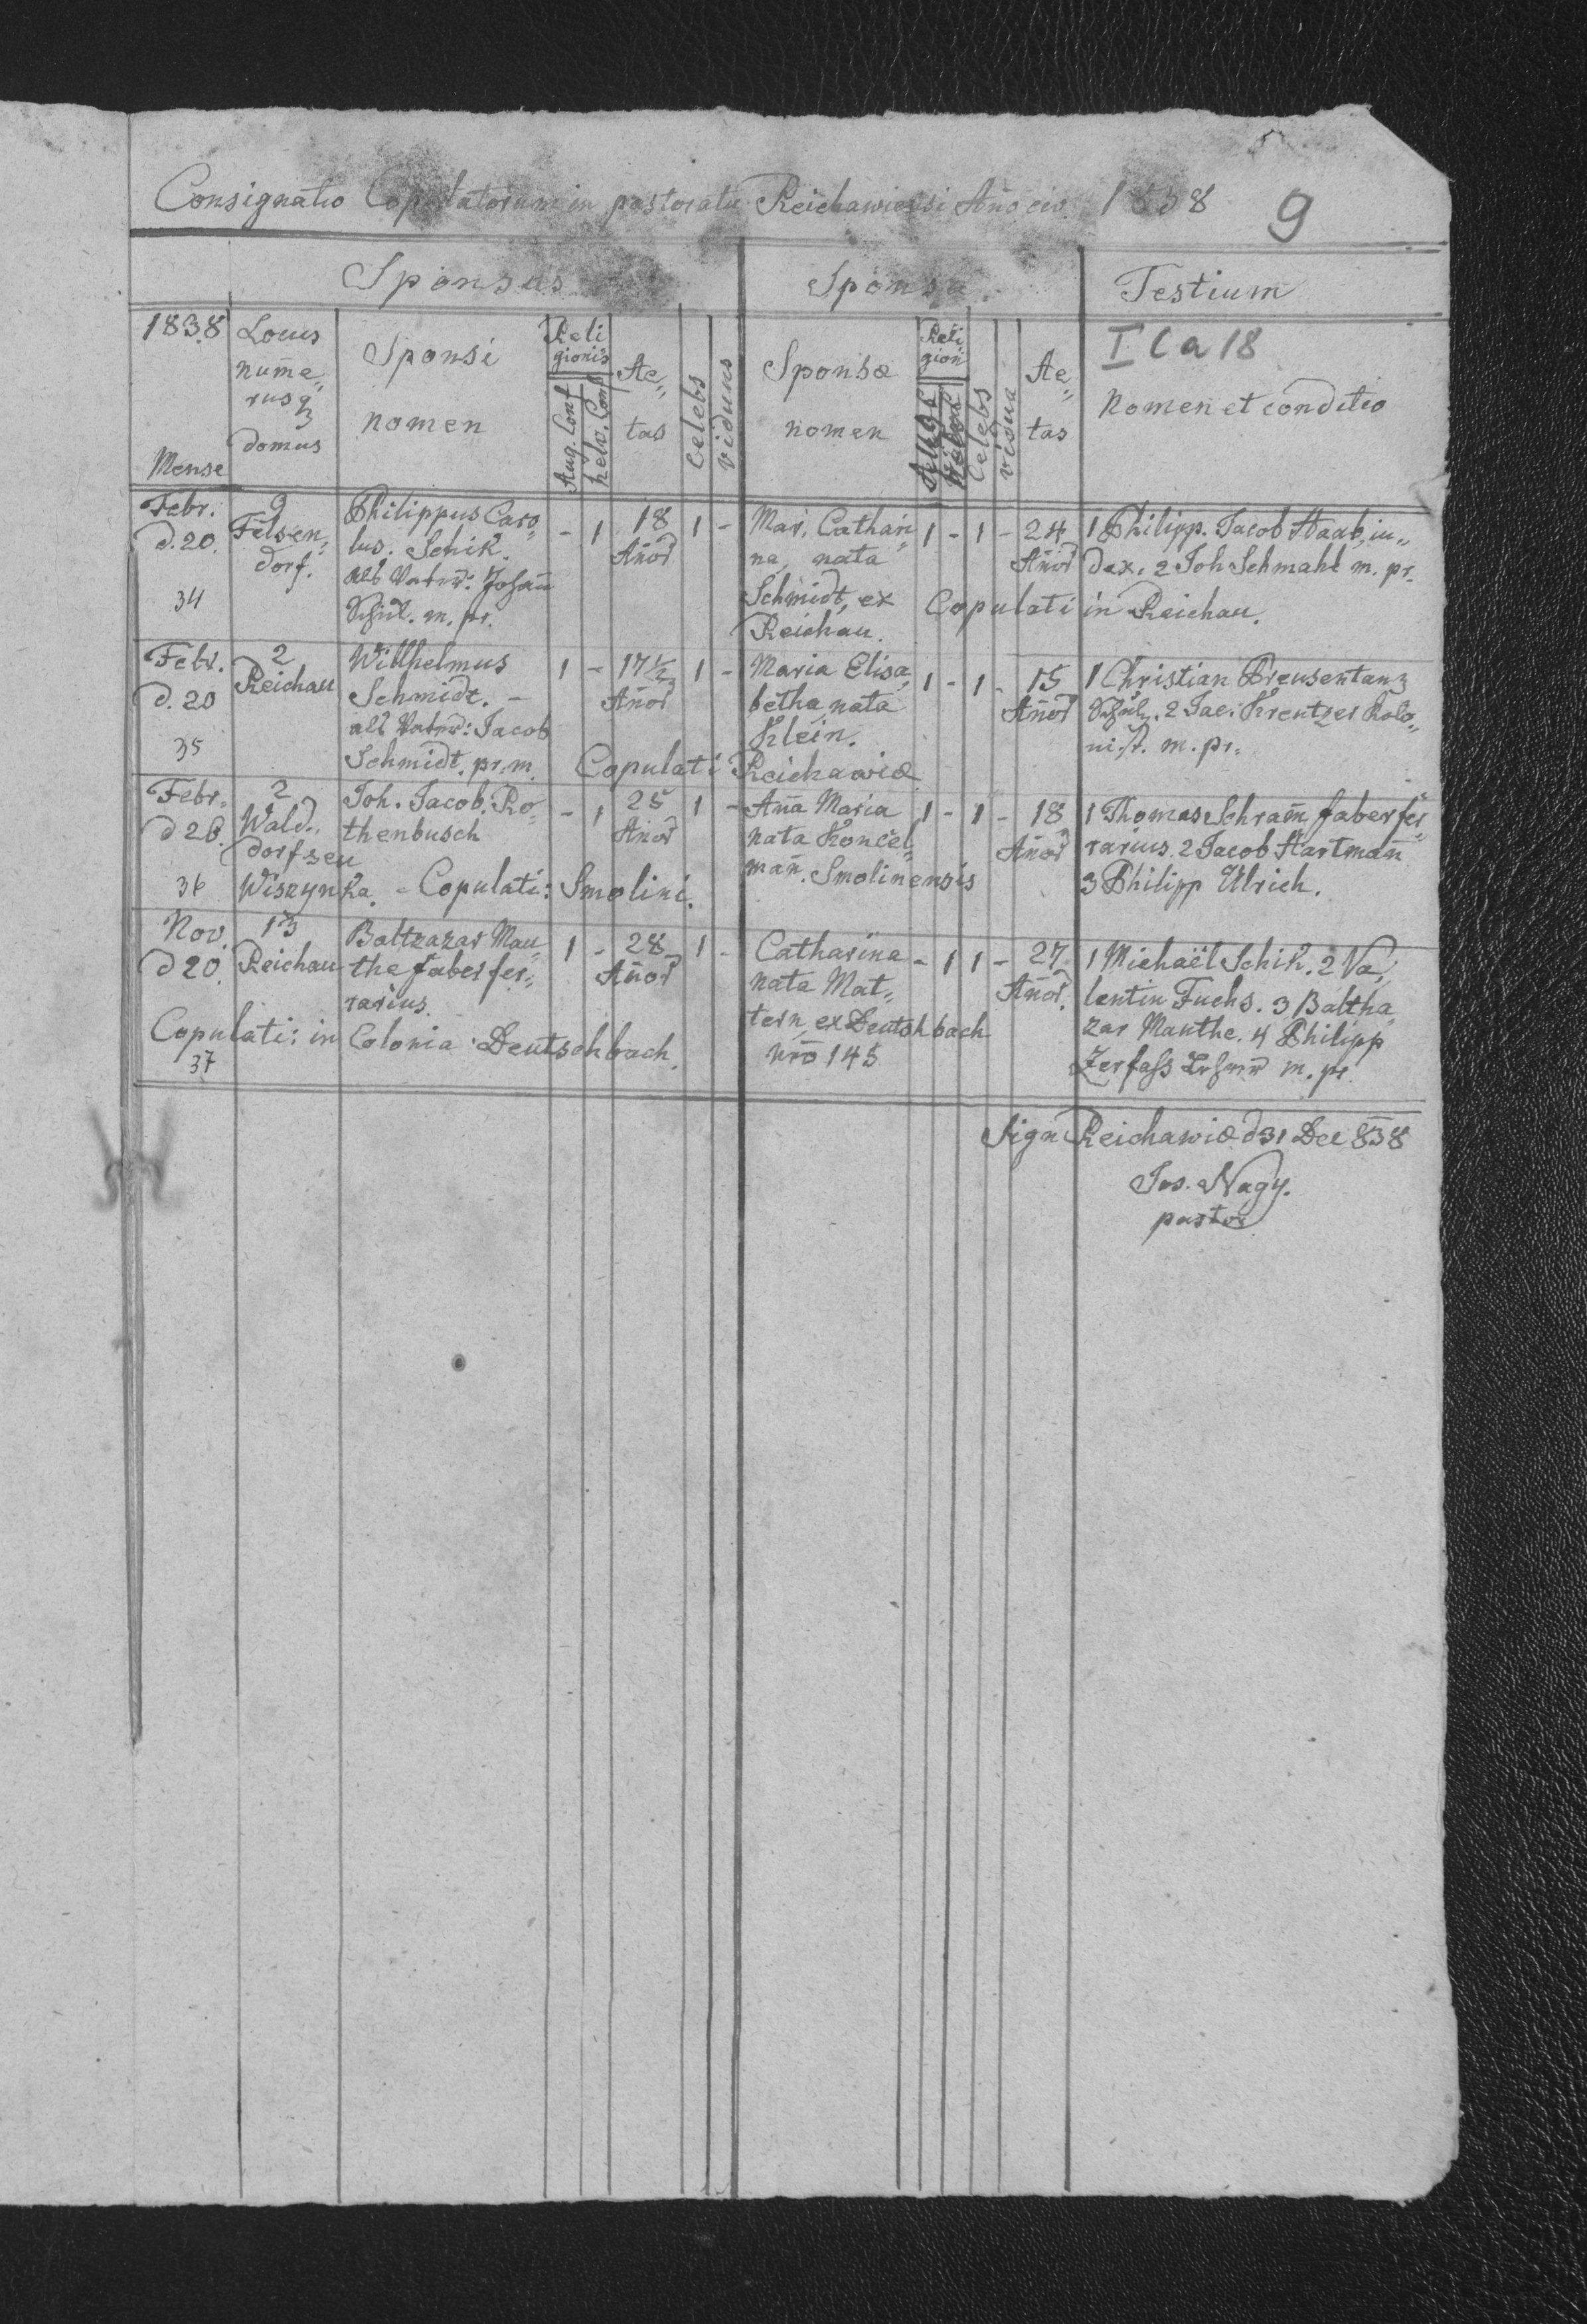 Consignatio Copulatorum in pastoratu Reichawiensi Año civ. 1838
9
Sponsus
Sponsa
Testium
I C a 18
1838
Mense
Locus
nume„
rusq
domus
Sponsi
nomen
Reli
gionis
Aug. Conf
helv. Conf
Ae„
tas
Celebs
viduus
Sponsæ
nomen
Reli
gion
Celebs
vidua
Ae„
tas
Nomen et conditio
Febr.
d. 20.
34
9
Felsen„
dorf.
Philippus Caro„
lus. Schik.
als Vater: Johañ
Schik. m. pr.
- 1
18
Añor
1 -
Mar. Cathari„
na, nata
Schmidt, ex
Reichau.
1 - 1 - 24
Añor
1 Philipp. Jacob Haab, iu„
dex. 2 Joh Schmahl m. pr.
Copulati in Reichau.
Febr.
d. 20
35
2
Reichau
Willhelmus
Schmidt. -
als Vater: Jacob
Schmidt. pr. m.
1 - 17½
Añor
1 -
Maria Elisa„
betha nata
Klein.
1 - 1 - 15
Añor
1 Christian Preusentanz
Schulz. 2 Jac. Kreutzer Kolo„
nist. m. pr.
Copulati Reichawiæ
Febr.
d 26.
36
2
Wald„
dorf seu
Wiszynka.
Joh. Jacob. Ro„
thenbusch
- 1
25
Añor
1 -
Aña Maria
nata Koncel„
mañ. Smolinensis
1 - 1 - 18
Añor
1 Thomas Schram̃ faber fer„
rarius. 2 Jacob Hartmañ
3 Philipp Ulrich.
- Copulati: Smolini.
Nov.
d 20.
13
Reichau
Baltzazar Mau„
the faber fer„
rarius.
1 - 28
Añor
1 -
Catharina
nata Mat„
tern, ex Deutshbach
nrõ 145
- 1 1 - 27
Añor.
1 Michaël Schik. 2 Va„
lentin Fuchs. 3 Baltha„
zar Manthe. 4 Philipp
Zerfass Lehrer m. pr
Copulati: in Colonia Deutschbach.
37
Sign Reichawiæ d 31 Dec 838
Jos. Nagy.
pastor